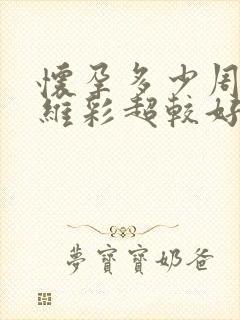 懷孕多少周
維彩超較好
夢寶寶奶爸